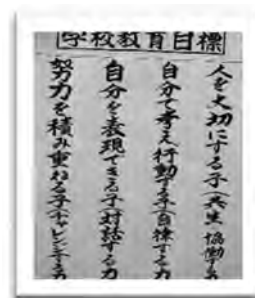 学校教育目標
人を大切にする子(共生・協働する
自分で考え行動する子(自律する力
自分を表現できる子(対話する力
努力を積み重ねる子(チャレンジする力